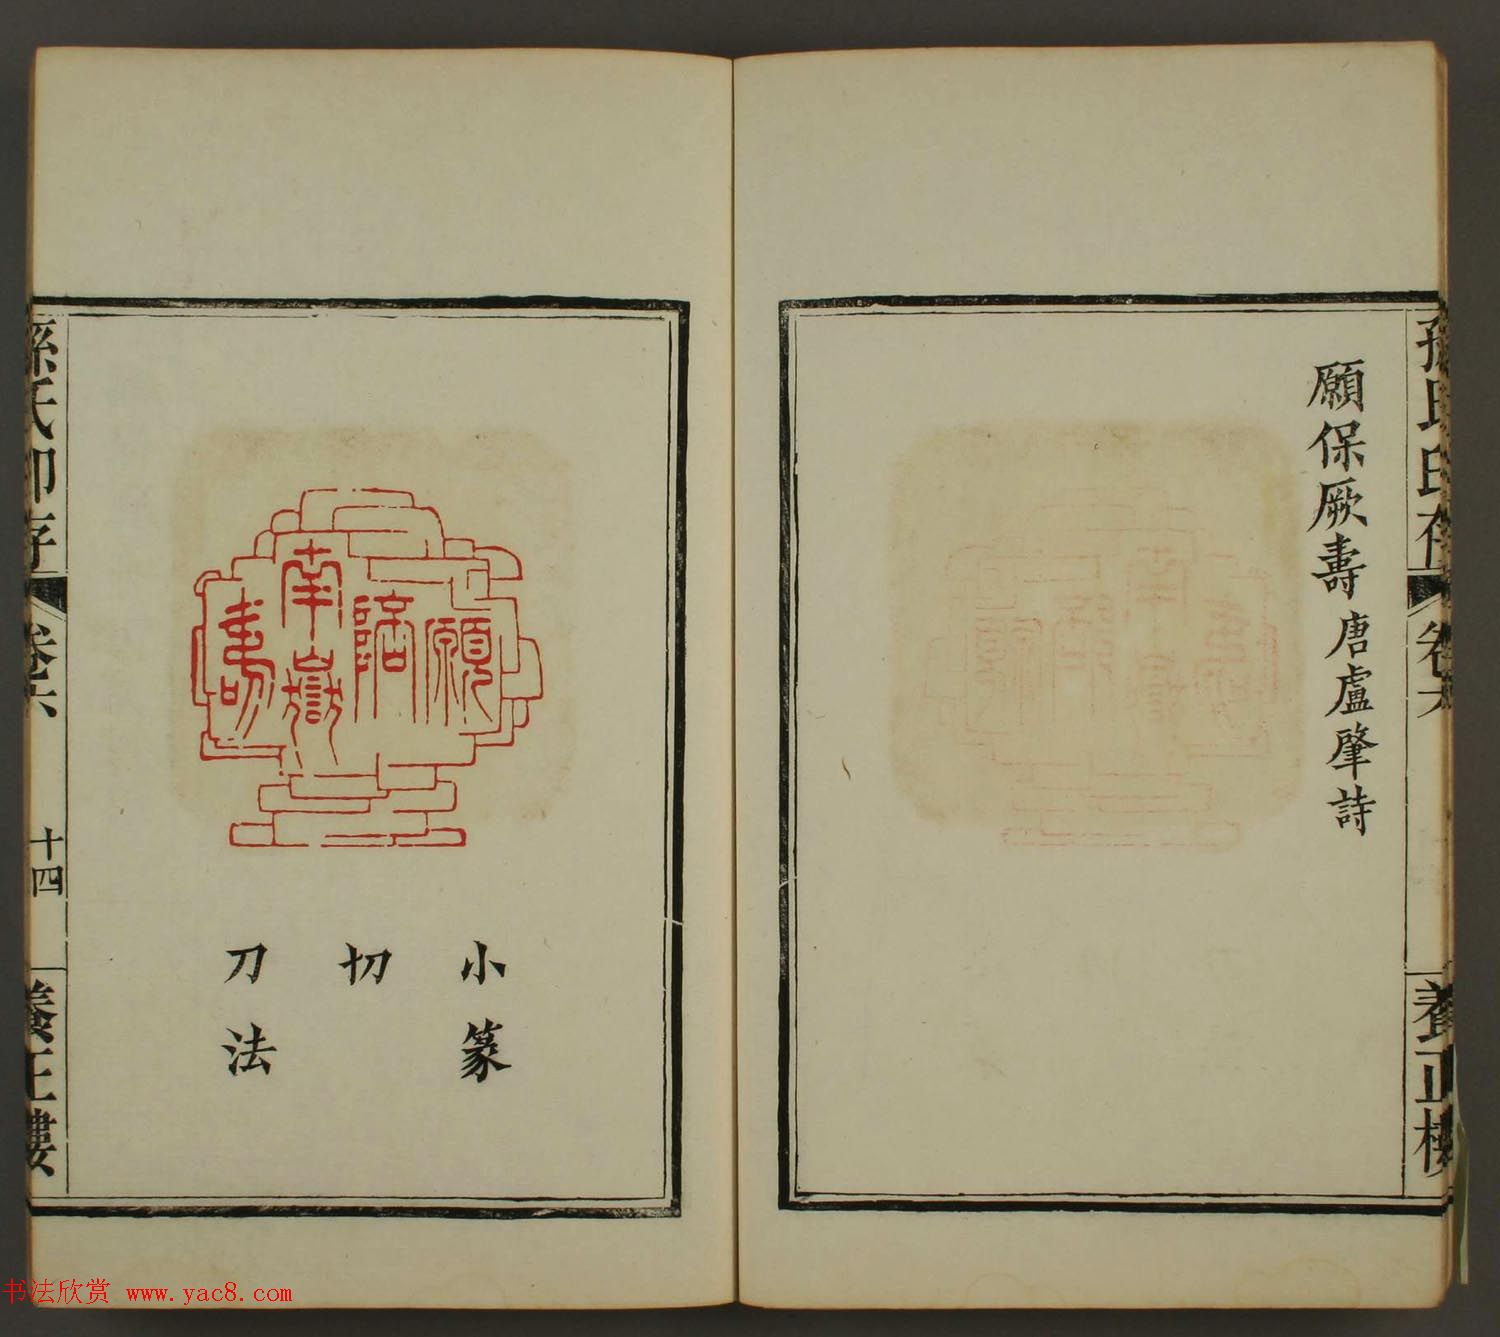 孫氏印存 卷六 養正樓
願保厥壽 唐盧肇詩
願陪南嶽壽
小篆
切
刀法
孫氏印存 卷六 十四 養正樓
书法欣赏 www.yac8.com